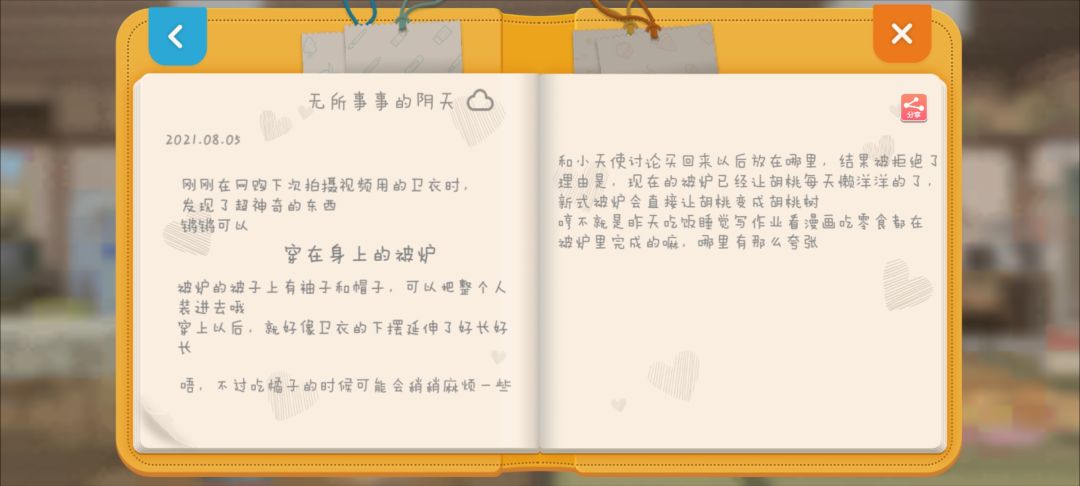 无所事事的阴天
2021.08.05
刚刚在网购下次拍摄视频用的卫衣时，
发现了超神奇的东西
锵锵可以
穿在身上的被炉
被炉的被子上有袖子和帽子，可以把整个人
装进去哦
穿上以后，就好像卫衣的下摆延伸了好长好
长
唔，不过吃橘子的时候可能会稍稍麻烦一些
分享
和小天使讨论买回来以后放在哪里，结果被拒绝了
理由是，现在的被炉已经让胡桃每天懒洋洋的了，
新式被炉会直接让胡桃变成胡桃树
哼不就是昨天吃饭睡觉写作业看漫画吃零食都在
被炉里完成的嘛，哪里有那么夸张